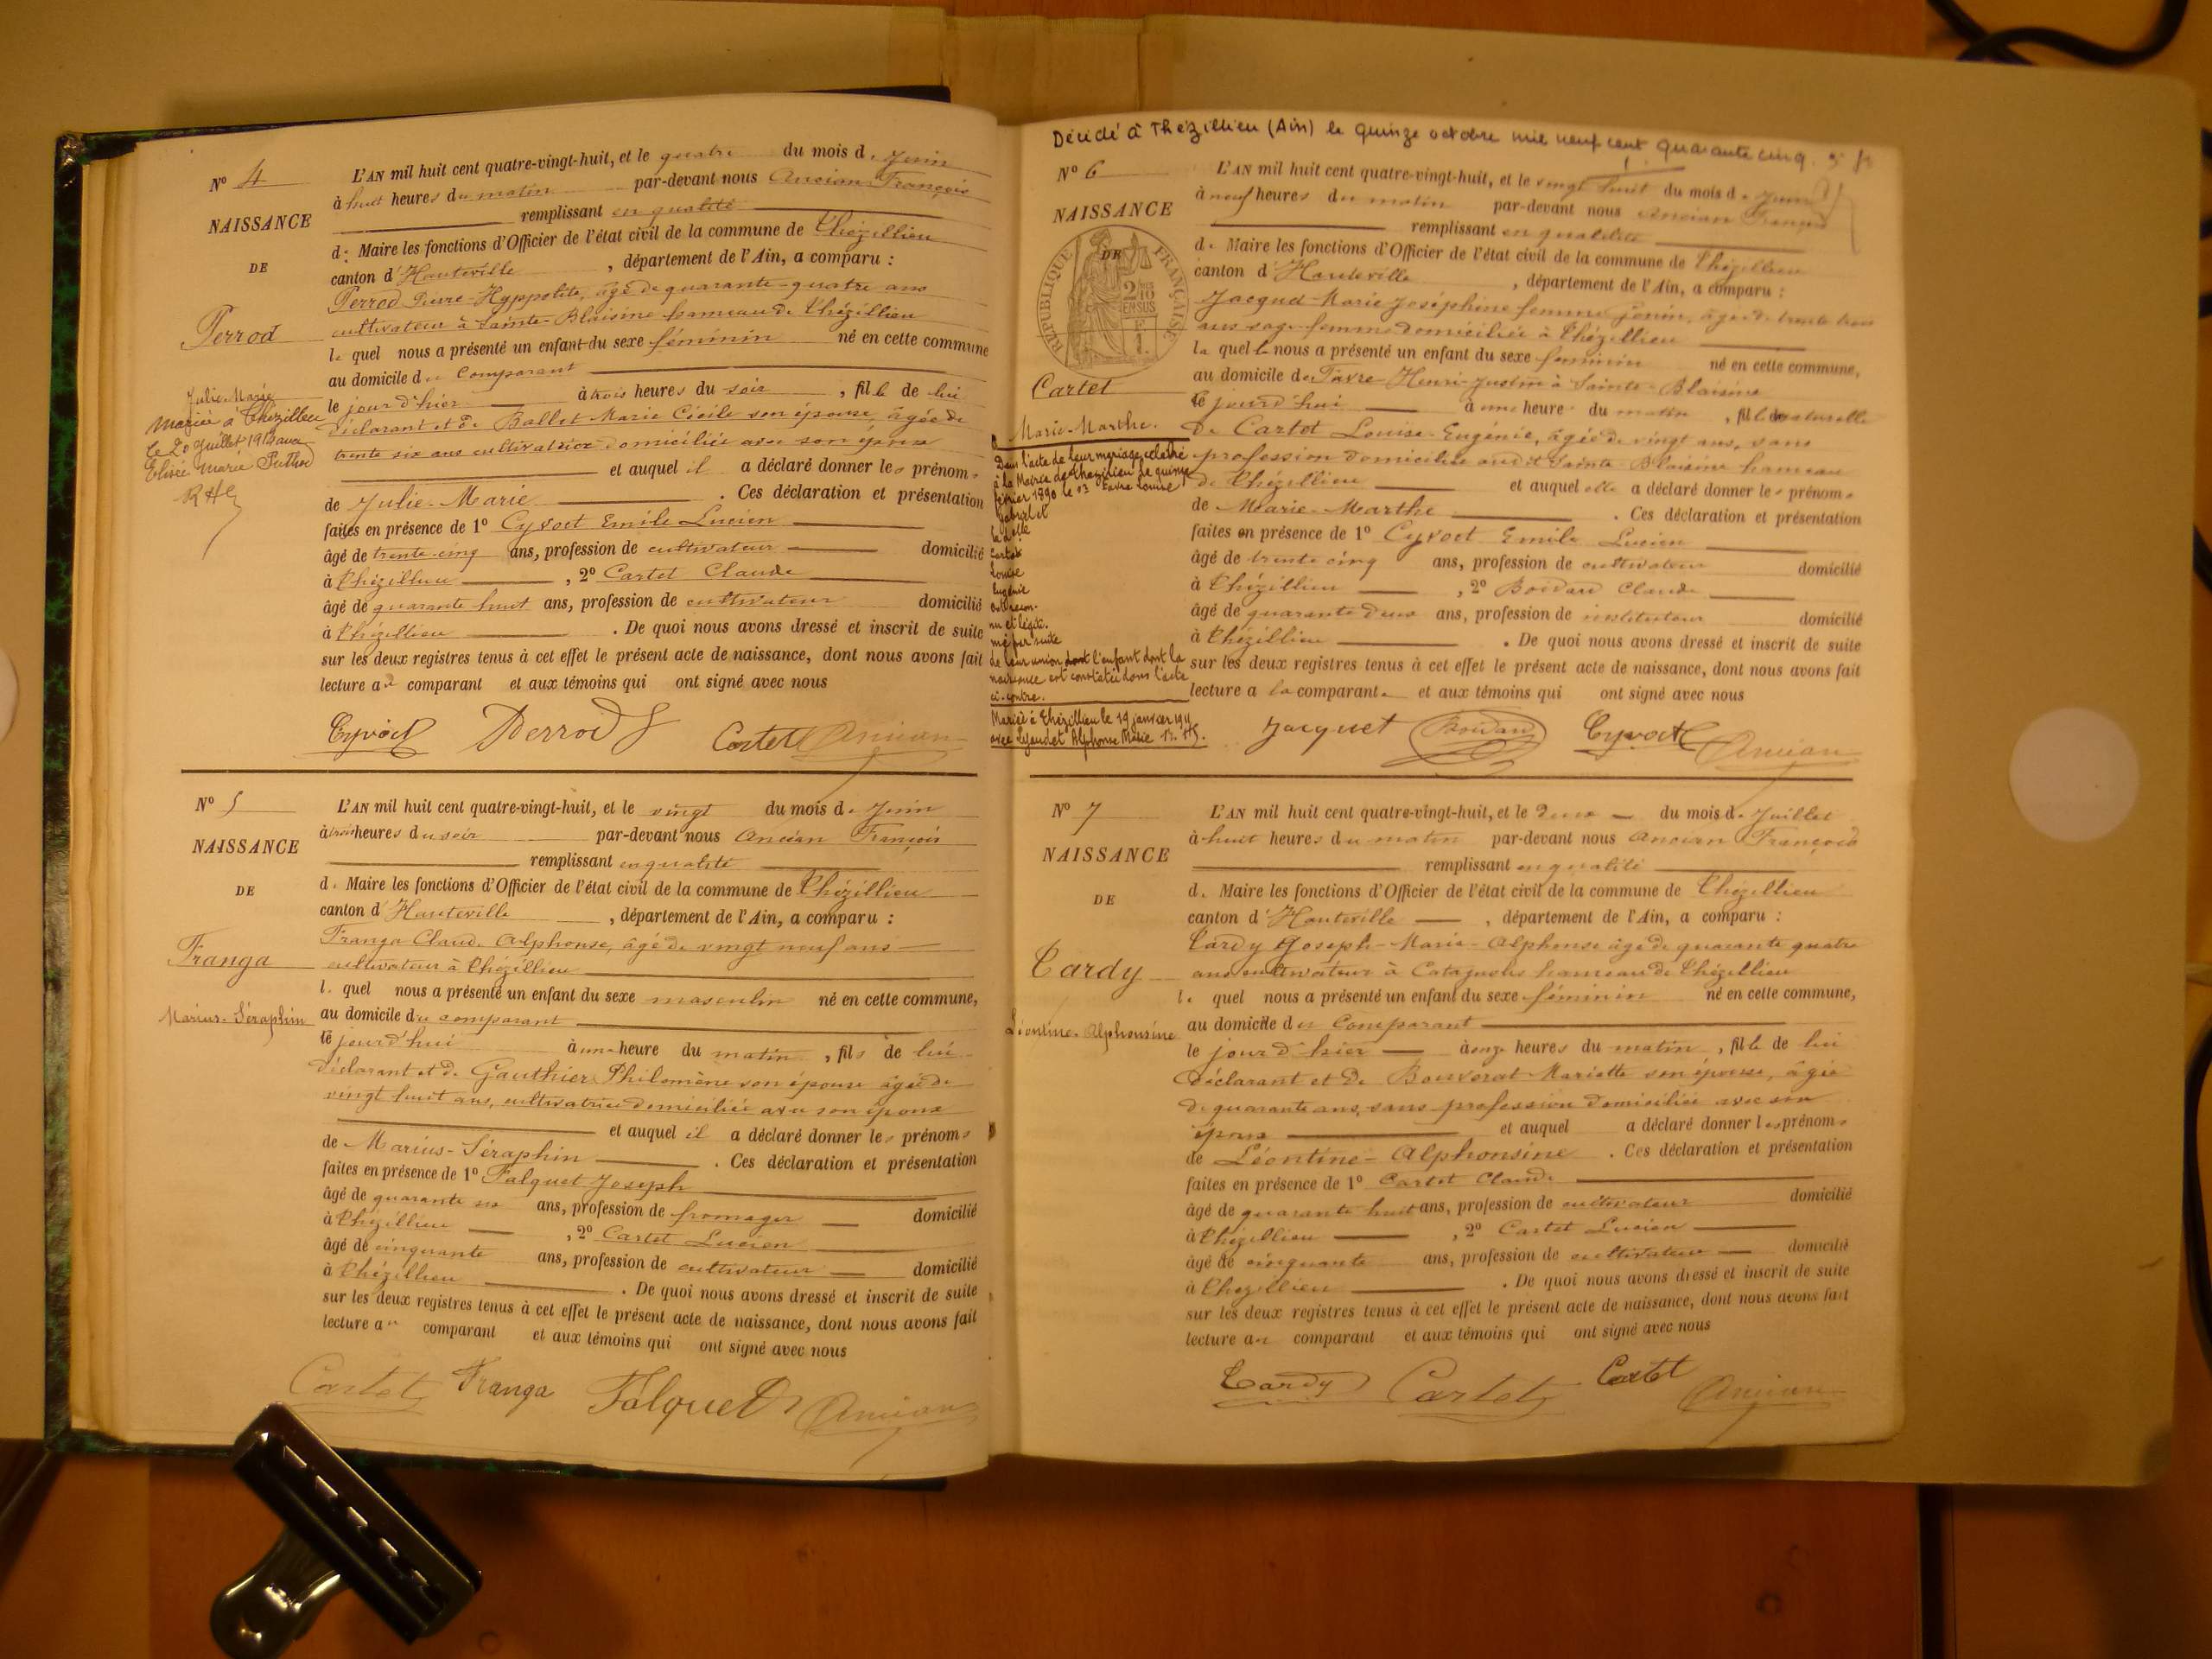 Nº 4
NAISSANCE
DE
Perrod
Julie-Marie
Mariée à Thézillieu
le 20 Juillet 1912 avec
Elisée Marie Puthod
L'AN mil huit cent quatre-vingt-huit, et le quatre du mois de Juin
à huit heures du matin par-devant nous Ancian François
remplissant en qualité
de Maire les fonctions d'Officier de l'état civil de la commune de Thézillieu
canton d'Hauteville, département de l'Ain, a comparu :
Perrod Pierre-Hyppolite, âgé de quarante-quatre ans
cultivateur à Sainte-Blaisine hameau de Thézillieu
le quel nous a présenté un enfant du sexe féminin né en cette commune
au domicile du Comparant
le jour d'hier à trois heures du soir, fille de lui
déclarant et de Ballet Marie Cécile son épouse, âgée de
trente six ans cultivatrice domiciliée avec son époux
et auquel il a déclaré donner les prénoms
de Julie-Marie. Ces déclaration et présentation
faites en présence de 1º Cyvoct Emile Lucien
âgé de trente-cinq ans, profession de cultivateur domicilié
à Thézillieu, 2º Cartet Claude
âgé de quarante huit ans, profession de cultivateur domicilié
à Thézillieu. De quoi nous avons dressé et inscrit de suite
sur les deux registres tenus à cet effet le présent acte de naissance, dont nous avons fait
lecture au comparant et aux témoins qui ont signé avec nous
Cyvoct Perrod Cartet Ancian
Nº 5
NAISSANCE
DE
Franga
Marius-Séraphin
L'AN mil huit cent quatre-vingt-huit, et le vingt du mois de Juin
à trois heures du soir par-devant nous Ancian François
remplissant en qualité
de Maire les fonctions d'Officier de l'état civil de la commune de Thézillieu
canton d'Hauteville, département de l'Ain, a comparu :
Franga Claude Alphonse, âgé de vingt neuf ans
cultivateur à Thézillieu
le quel nous a présenté un enfant du sexe masculin né en cette commune,
au domicile du comparant
le jourd'hui à une heure du matin, fils de lui
déclarant et de Gauthier Philomène son épouse âgée de
vingt huit ans, cultivatrice domiciliée avec son époux
et auquel il a déclaré donner les prénoms
de Marius-Séraphin. Ces déclaration et présentation
faites en présence de 1º Falquet Joseph
âgé de quarante six ans, profession de fromager domicilié
à Thézillieu, 2º Cartet Lucien
âgé de cinquante ans, profession de cultivateur domicilié
à Thézillieu. De quoi nous avons dressé et inscrit de suite
sur les deux registres tenus à cet effet le présent acte de naissance, dont nous avons fait
lecture au comparant et aux témoins qui ont signé avec nous
Cartet Franga Falquet Ancian
Décédé à Thézillieu (Ain) le quinze octobre mil neuf cent quarante cinq.
Nº 6
NAISSANCE
DE
RÉPUBLIQUE FRANÇAISE
2/10 EN SUS
Cartet
Marie-Marthe.
Dans l'acte de leur mariage célébré
à la Mairie de Thézillieu le quinze
février 1890 le Favre Louise
Gabriel et
la dlle
Cartet
Louise
Eugénie
ont recon-
nu et légiti-
mé par suite
de leur union dont l'enfant dont la
naissance est constatée dans l'acte
ci-contre.
Mariée à Thézillieu le 19 janvier 1911
avec Alphonse Marie
L'AN mil huit cent quatre-vingt-huit, et le vingt huit du mois de Juin
à neuf heures du matin par-devant nous Ancian François
remplissant en qualité
de Maire les fonctions d'Officier de l'état civil de la commune de Thézillieu
canton d'Hauteville, département de l'Ain, a comparu :
Jacquet Marie Joséphine femme Jenin, âgée de trente trois
ans sage-femme domiciliée à Thézillieu
la quelle nous a présenté un enfant du sexe féminin né en cette commune,
au domicile de Favre-Henri-Justin à Sainte-Blaisine
le jourd'hui à une heure du matin, fille naturelle
de Cartet Louise-Eugénie, âgée de vingt ans, sans
profession domiciliée audit Sainte-Blaisine hameau
de Thézillieu et auquel elle a déclaré donner les prénoms
de Marie-Marthe. Ces déclaration et présentation
faites en présence de 1º Cyvoct Emile Lucien
âgé de trente cinq ans, profession de cultivateur domicilié
à Thézillieu, 2º Boidard Claude
âgé de quarante deux ans, profession de instituteur domicilié
à Thézillieu. De quoi nous avons dressé et inscrit de suite
sur les deux registres tenus à cet effet le présent acte de naissance, dont nous avons fait
lecture a la comparante et aux témoins qui ont signé avec nous
Jacquet Boidard Cyvoct Ancian
Nº 7
NAISSANCE
DE
Tardy
Léontine-Alphonsine
L'AN mil huit cent quatre-vingt-huit, et le deux du mois de Juillet
à huit heures du matin par-devant nous Ancian François
remplissant en qualité
de Maire les fonctions d'Officier de l'état civil de la commune de Thézillieu
canton d'Hauteville, département de l'Ain, a comparu :
Tardy Joseph-Marie-Alphonse âgé de quarante quatre
ans cultivateur à hameau de Thézillieu
le quel nous a présenté un enfant du sexe féminin né en cette commune,
au domicile du Comparant
le jour d'hier à onze heures du matin, fille de lui
déclarant et de Bouverat Mariette son épouse, âgée
de quarante ans, sans profession domiciliée avec son
époux et auquel a déclaré donner les prénoms
de Léontine-Alphonsine. Ces déclaration et présentation
faites en présence de 1º Cartet Claude
âgé de quarante huit ans, profession de cultivateur domicilié
à Thézillieu, 2º Cartet Lucien
âgé de cinquante ans, profession de cultivateur domicilié
à Thézillieu. De quoi nous avons dressé et inscrit de suite
sur les deux registres tenus à cet effet le présent acte de naissance, dont nous avons fait
lecture au comparant et aux témoins qui ont signé avec nous
Tardy Cartet Cartet Ancian